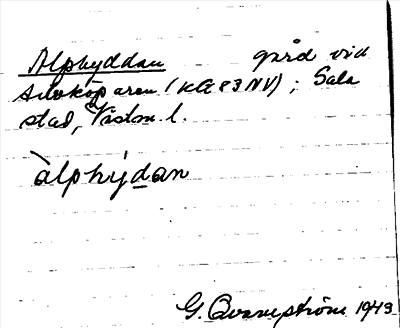 Alphyddan gård vid
Silvköparen (KA 83 NV); Sala
stad, Västm. l.
àlphýdan
G. Qvarnström 1943